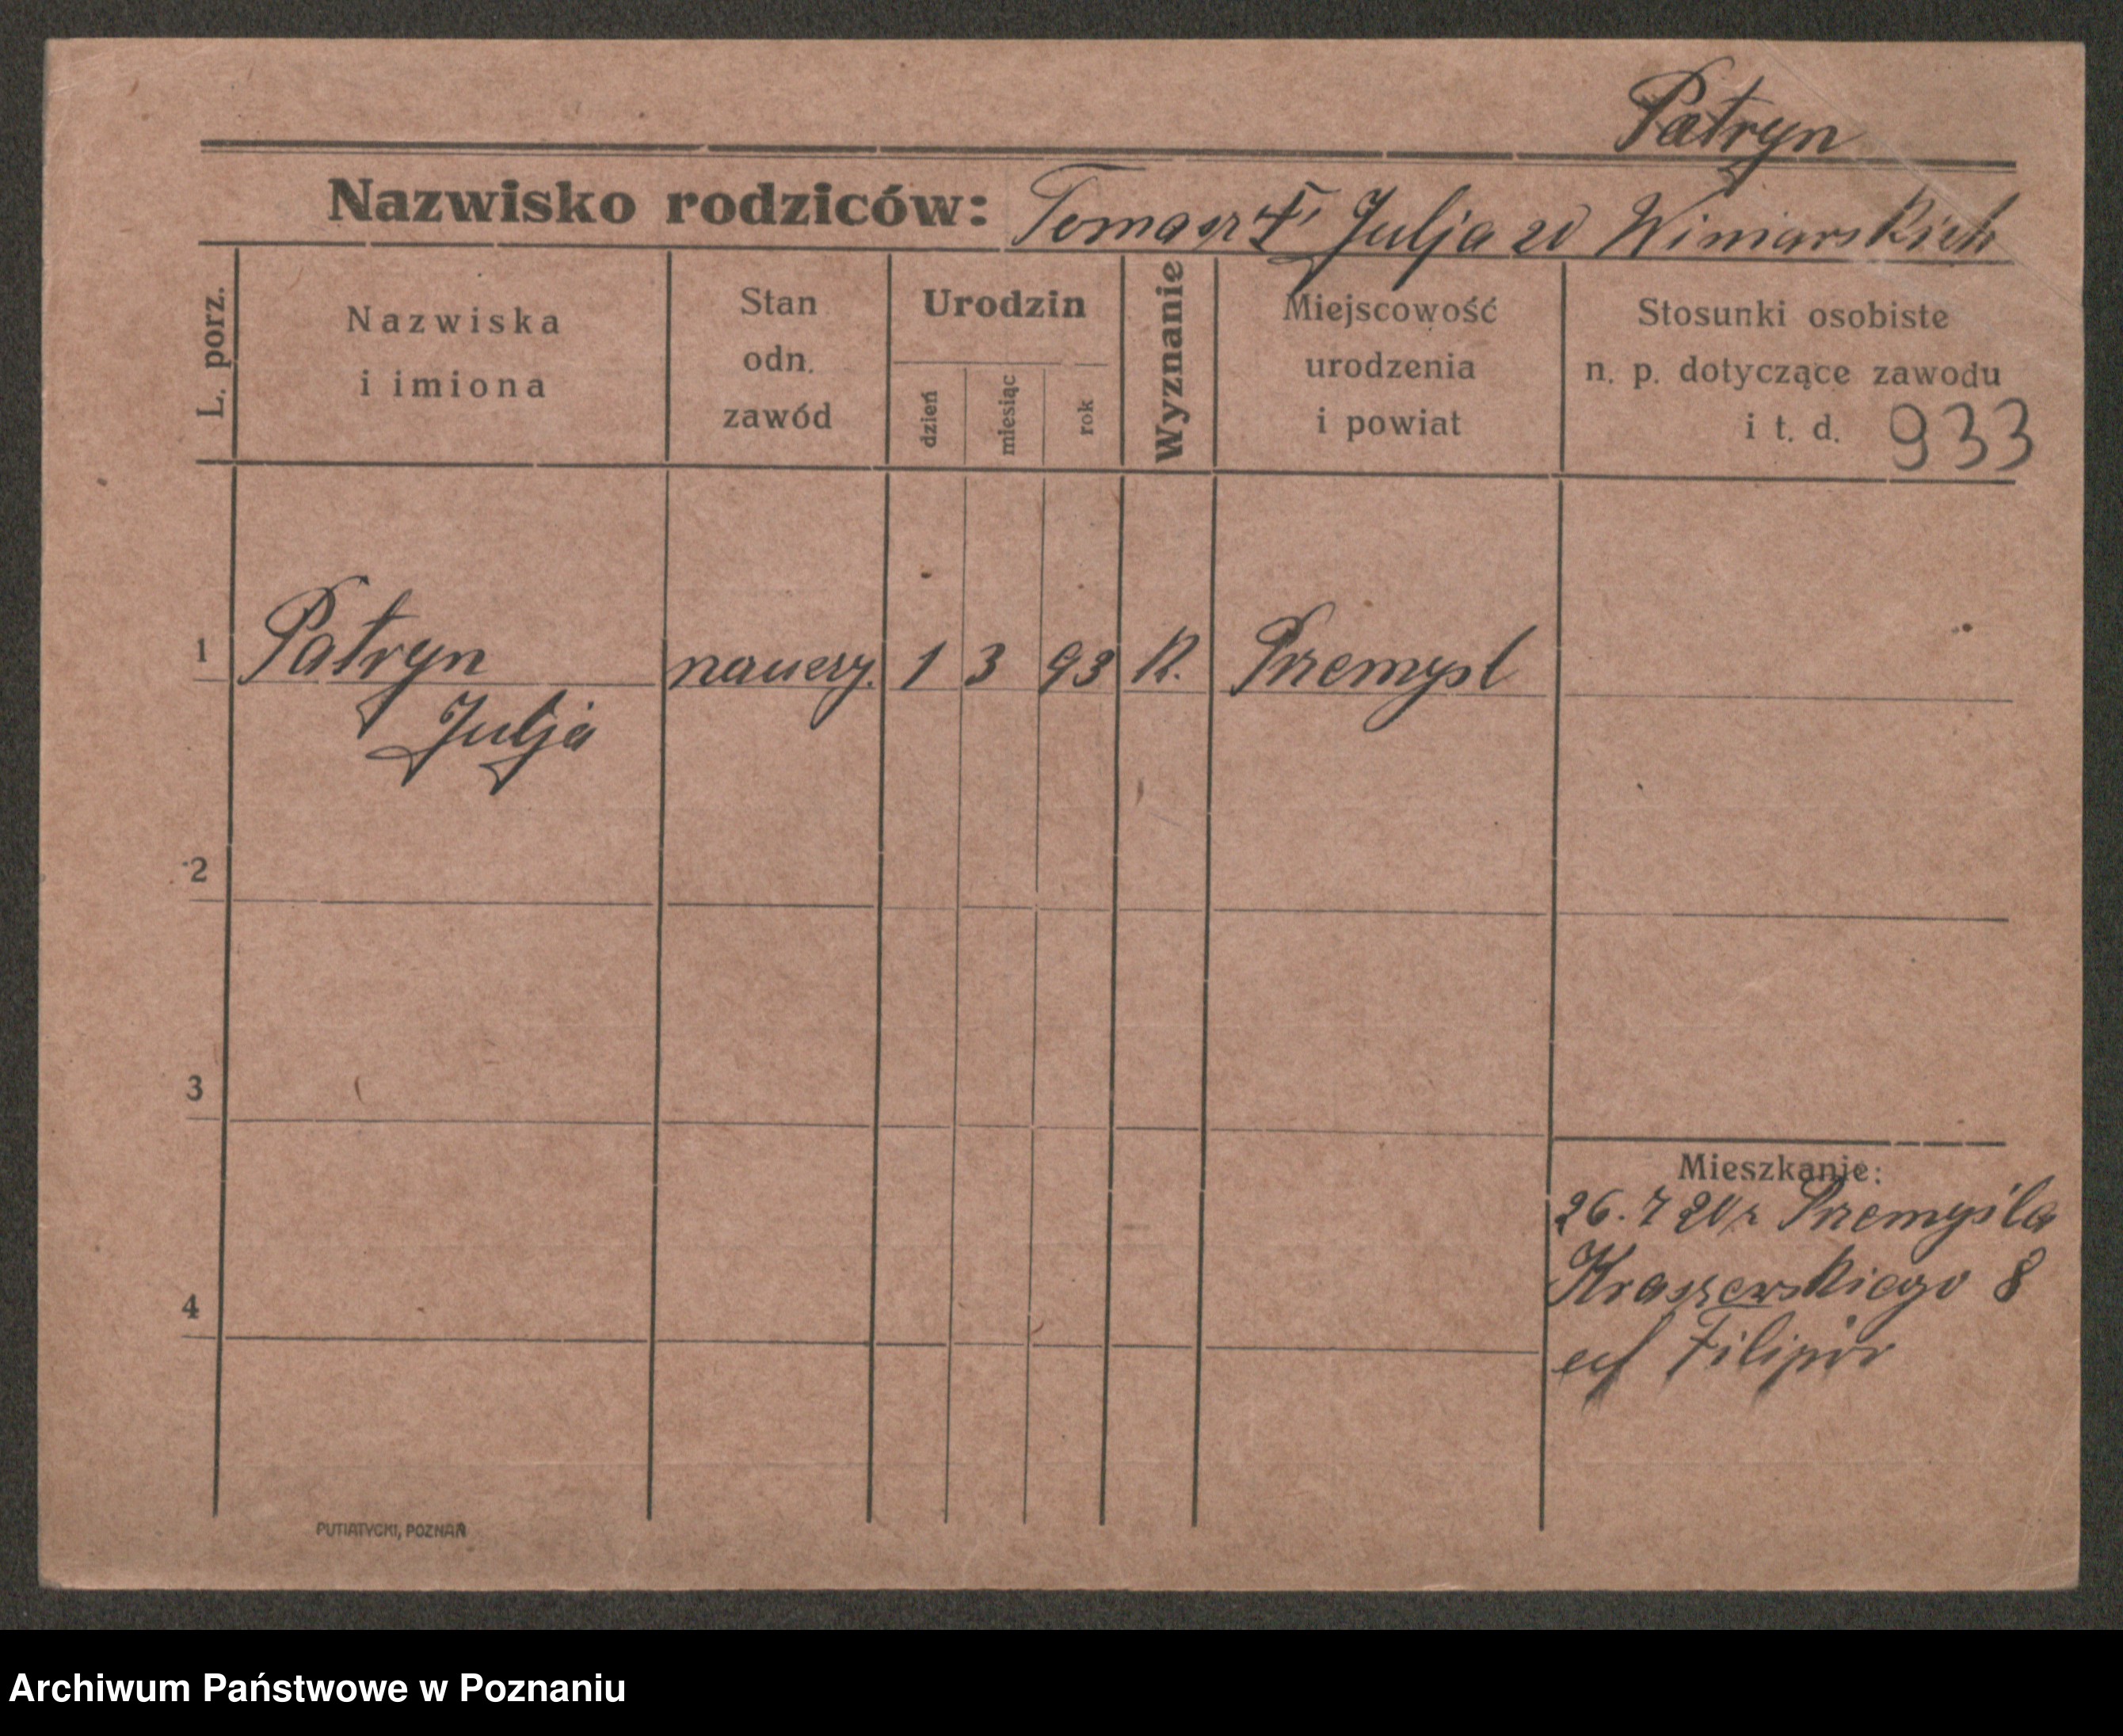 Patryn
Nazwisko rodziców: Tomasz i Julja z Winiarskich
L. porz.
Nazwiska
i imiona
Stan
odn.
zawód
Urodzin
dzień
miesiąc
rok
Wyznanie
Miejscowość
urodzenia
i powiat
Stosunki osobiste
n. p. dotyczące zawodu
i t. d. 933
1 Patryn nauczy. 1 3 93 R. Przemysl
Julja
2
3
Mieszkanie:
26. 7 20 r Przemyśla
Kraszewskiego 8
4
Filipór
PUTIATYCKI, POZNAŃ
Archiwum Państwowe w Poznaniu